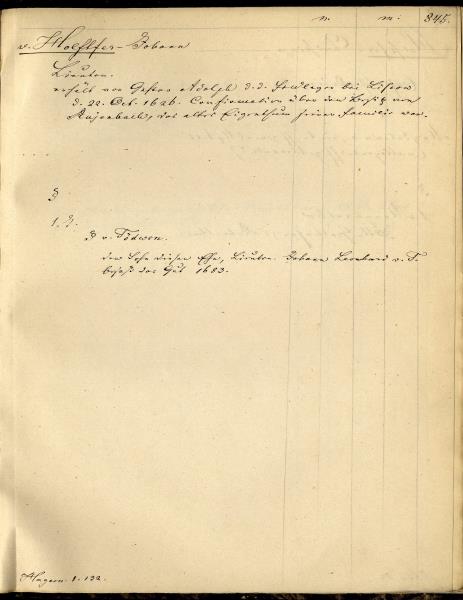 n. m. 345.
v. Hoefflser-Johann
Lieuten.
erhält von Gustav Adolph d. d. Feldlager bei
d. 22. Oct. 1626. Confirmation über den Besitz von
das altes Eigenthum seiner Familie war.
1. E.
v. Tödwen.
der Sohn dieser Ehe, Lieuten. Johann Leonhard v. T.
besaß das Gut 1683.
Hagem. 1. 132.